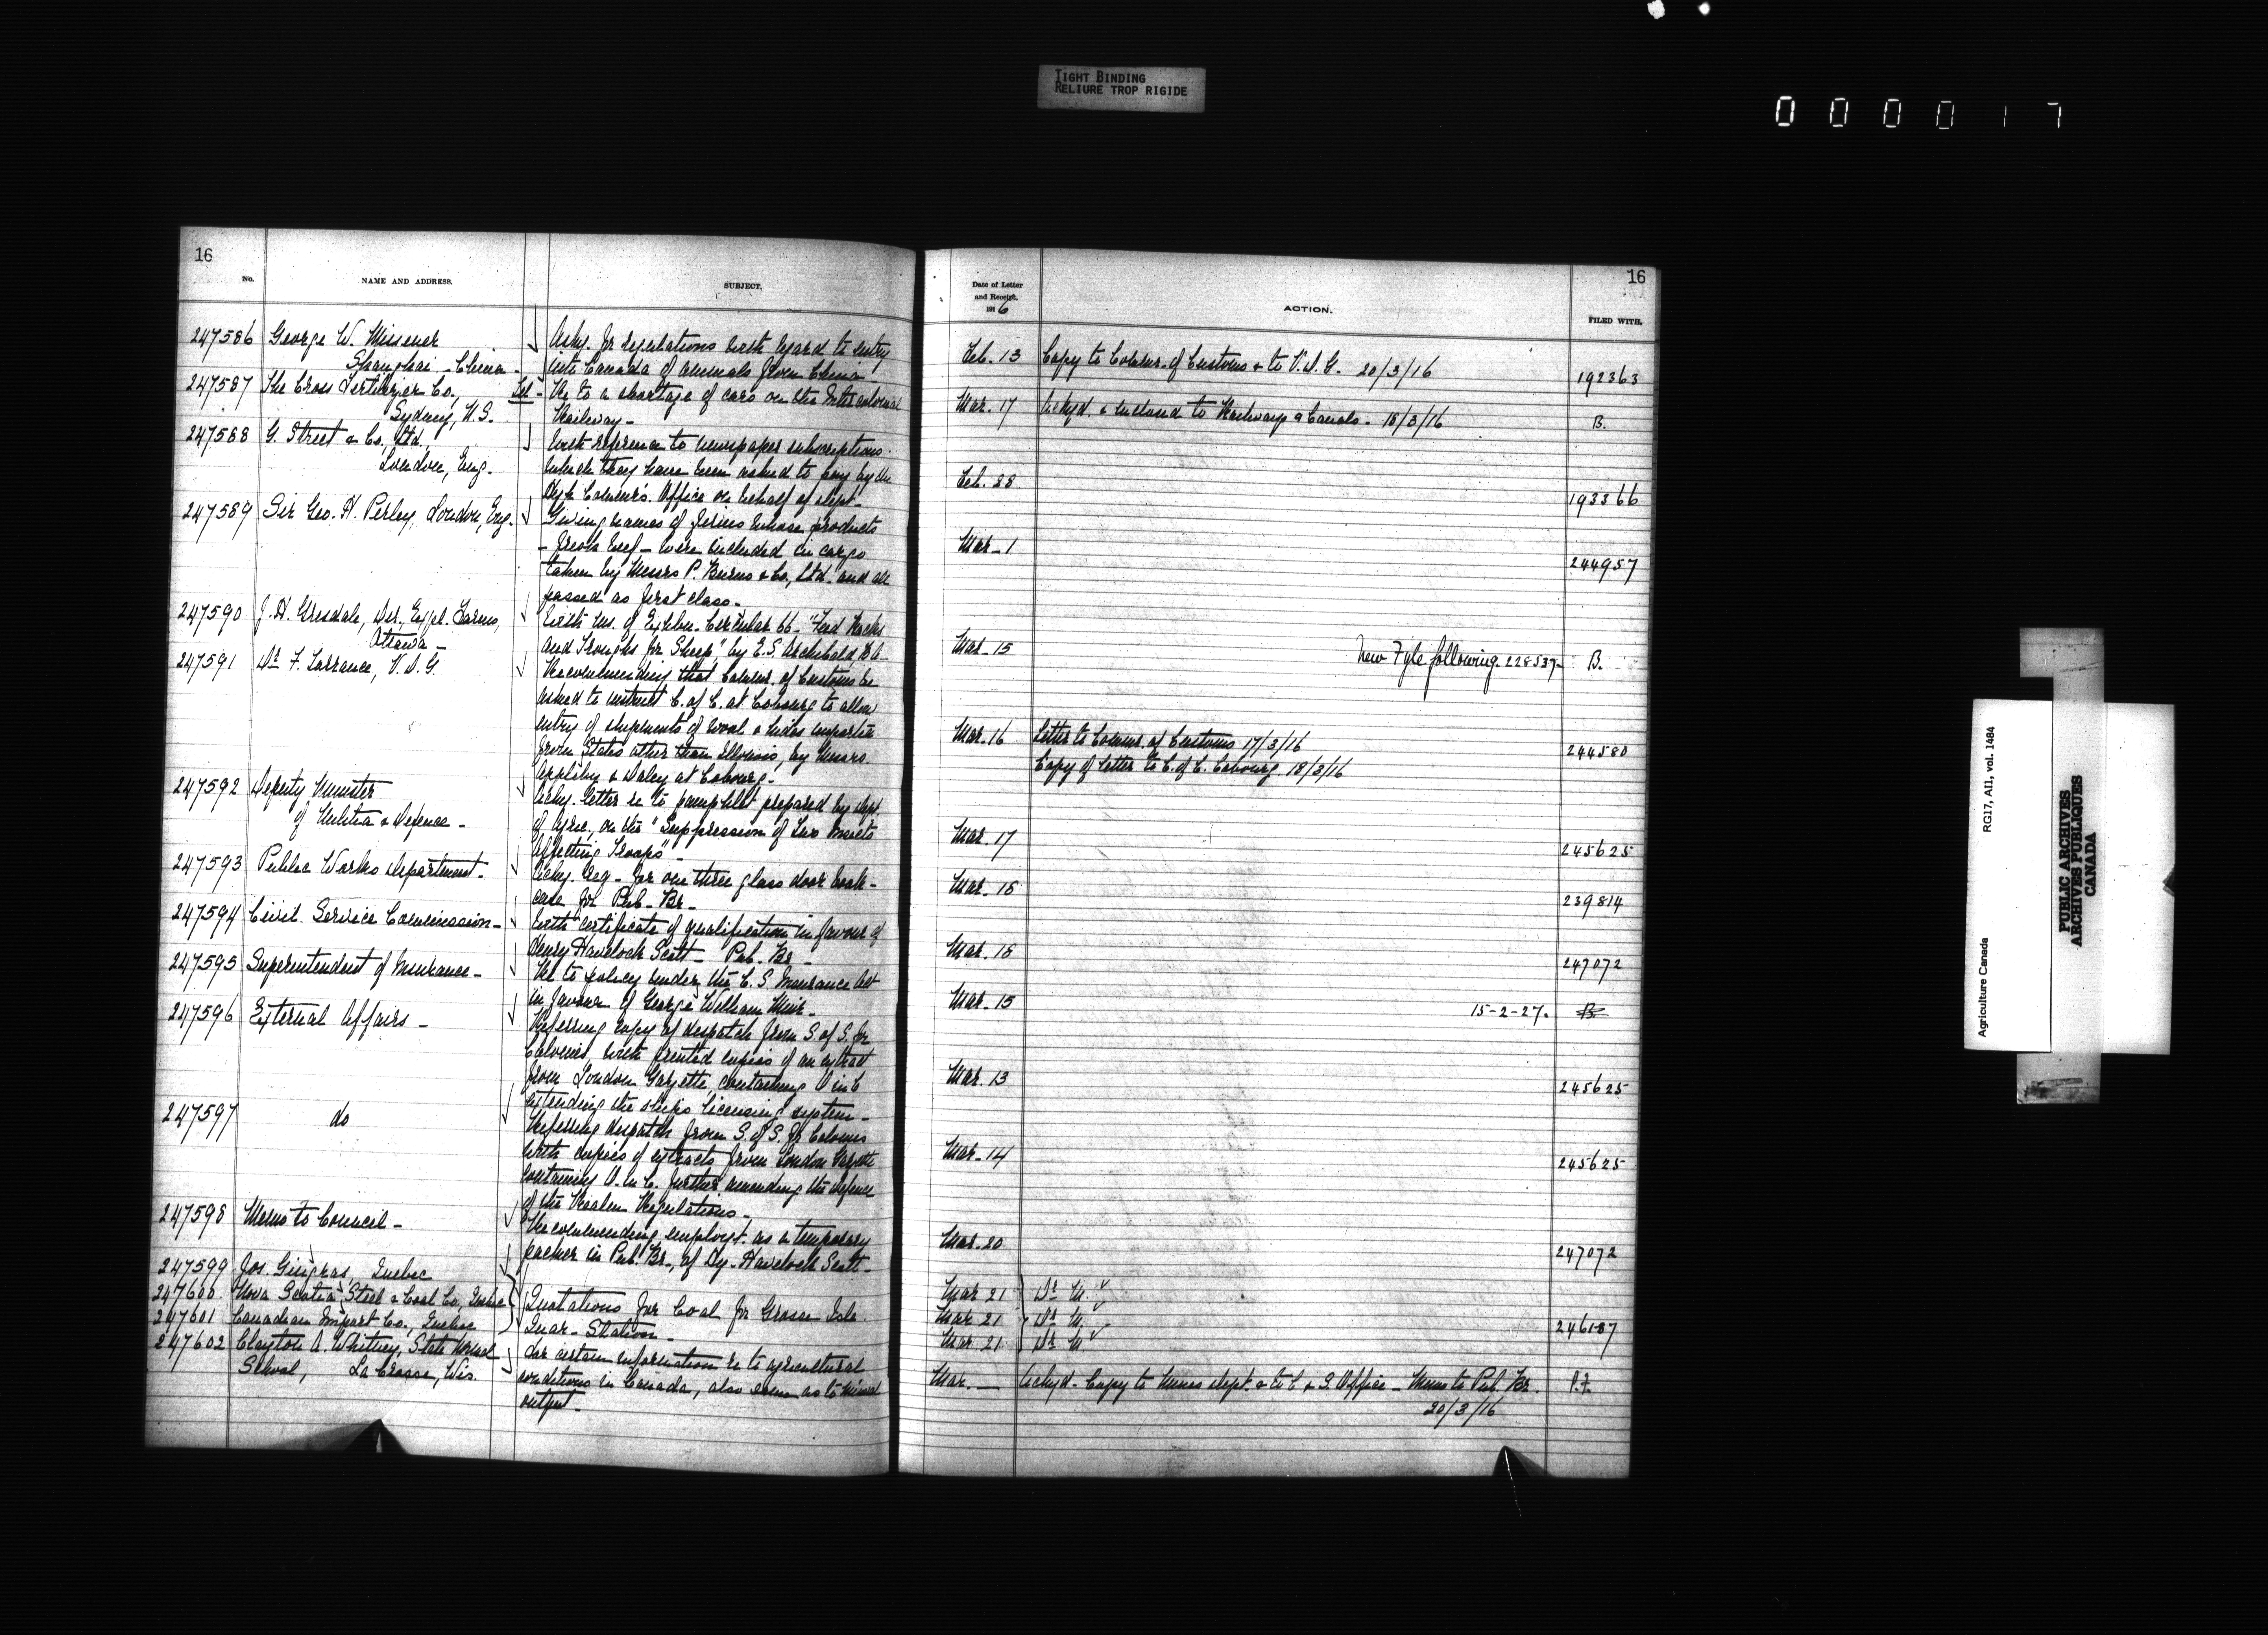 TIGHT BINDING
RELIURE TROP RIGIDE
000017
16
No.
NAME AND ADDRESS.
SUBJECT.
247586 George W. Missener
Shanghai - China -
Asks. for regulations with regard to entry
into Canada of animals from China -
247587 The Cross Fertilizer Co.,
Sydney, N.S.
Tel - Re to a shortage of cars on the Intercolonial
Railway -
247588 G. Street & Co. Ltd.
London, Eng.
With reference to newspaper subscriptions
which they have been asked to pay by the
High Commr's. Office on behalf of dept -
247589 Sir Geo. H. Perley, London, Eng.
Giving names of firms whose products
- fresh beef - were included in cargo
taken by Messrs P. Burns & Co., Ltd. and all
passed as first class -
247590 J. H. Grisdale, Dir. Expl. Farms,
Ottawa -
With ms. of Exhbn. Circular 66 - "Feed Racks
and Troughs for Sheep" by E.S. Archibald B.A.
247591 Dr. F. Torrance, V.D.G.
Recommending that Commr. of Customs be
asked to instruct C. of C. at Cobourg to allow
entry of shipments of wool & hides imported
from States other than Illinois, by Messrs.
Appleby & Daley at Cobourg -
247592 Deputy Minister
of Militia & Defence -
Ackg. letter re to pamphlet prepared by Dept
of Agric., on the "Suppression of Two Insects
Affecting Troops" -
247593 Public Works Department -
Ackg. req - for one three glass door book-
case for Pub - Br -
247594 Civil Service Commission -
With certificate of qualification in favour of
Henry Havelock Scott - Pub - Br -
247595 Superintendent of Insurance -
Re to policy under the C.S. Insurance Act
in favour of George William Muir -
247596 External Affairs -
Referring copy of despatch from S. of S. for
Colonies, with printed copies of an extract
from London Gazette, containing O in C
extending the ships licensing system -
247597 do
Referring despatch from S. of S. for Colonies
with copies of extracts from London Gazette
containing O. in C. further amending the defence
of the Realm Regulations -
247598 Memo to Council -
Recommending employt. as a temporary
packer in Pub. Br., of Hy. Havelock Scott -
247599 Jos. Gingras, Quebec
247600 Nova Scotia Steel & Coal Co., Quebec
247601 Canadian Import Co., Quebec
Quotations for Coal for Grosse Isle
Quar - Station -
247602 Clayton A. Whitney, State Normal
School, La Crosse, Wis.
For certain information re to agricultural
conditions in Canada, also even as to mineral
output -
16
Date of Letter
and Receipt.
1916
ACTION.
FILED WITH.
Feb. 13 Copy to Commr. of Customs & to V.D.G. 20/3/16 192363
Mar. 17 Ackgd. & enclosed to Railways & Canals - 18/3/16 B.
Feb. 28 193366
Mar - 1 244957
Mar - 15 New Fyle following 228537 - B.
Mar. 16 Letter to Commr. of Customs 17/3/16 244580
Copy of letter to C. of C. Cobourg 18/3/16
Mar. 17 245625
Mar - 16 239814
Mar. 18 247072
Mar - 15 15-2-27. B.
Mar. 13 245625
Mar - 14 245625
Mar. 20 247072
Mar 21 Dr. M
Mar. 21 Dr. M
Mar. 21 Dr. M 246187
Mar. - Ackgd - Copy to Mines Dept. & to C & S. Office - Memo to Pub. Br. P.F.
20/3/16
Agriculture Canada
RG17, AII, vol. 1484
PUBLIC ARCHIVES
ARCHIVES PUBLIQUES
CANADA